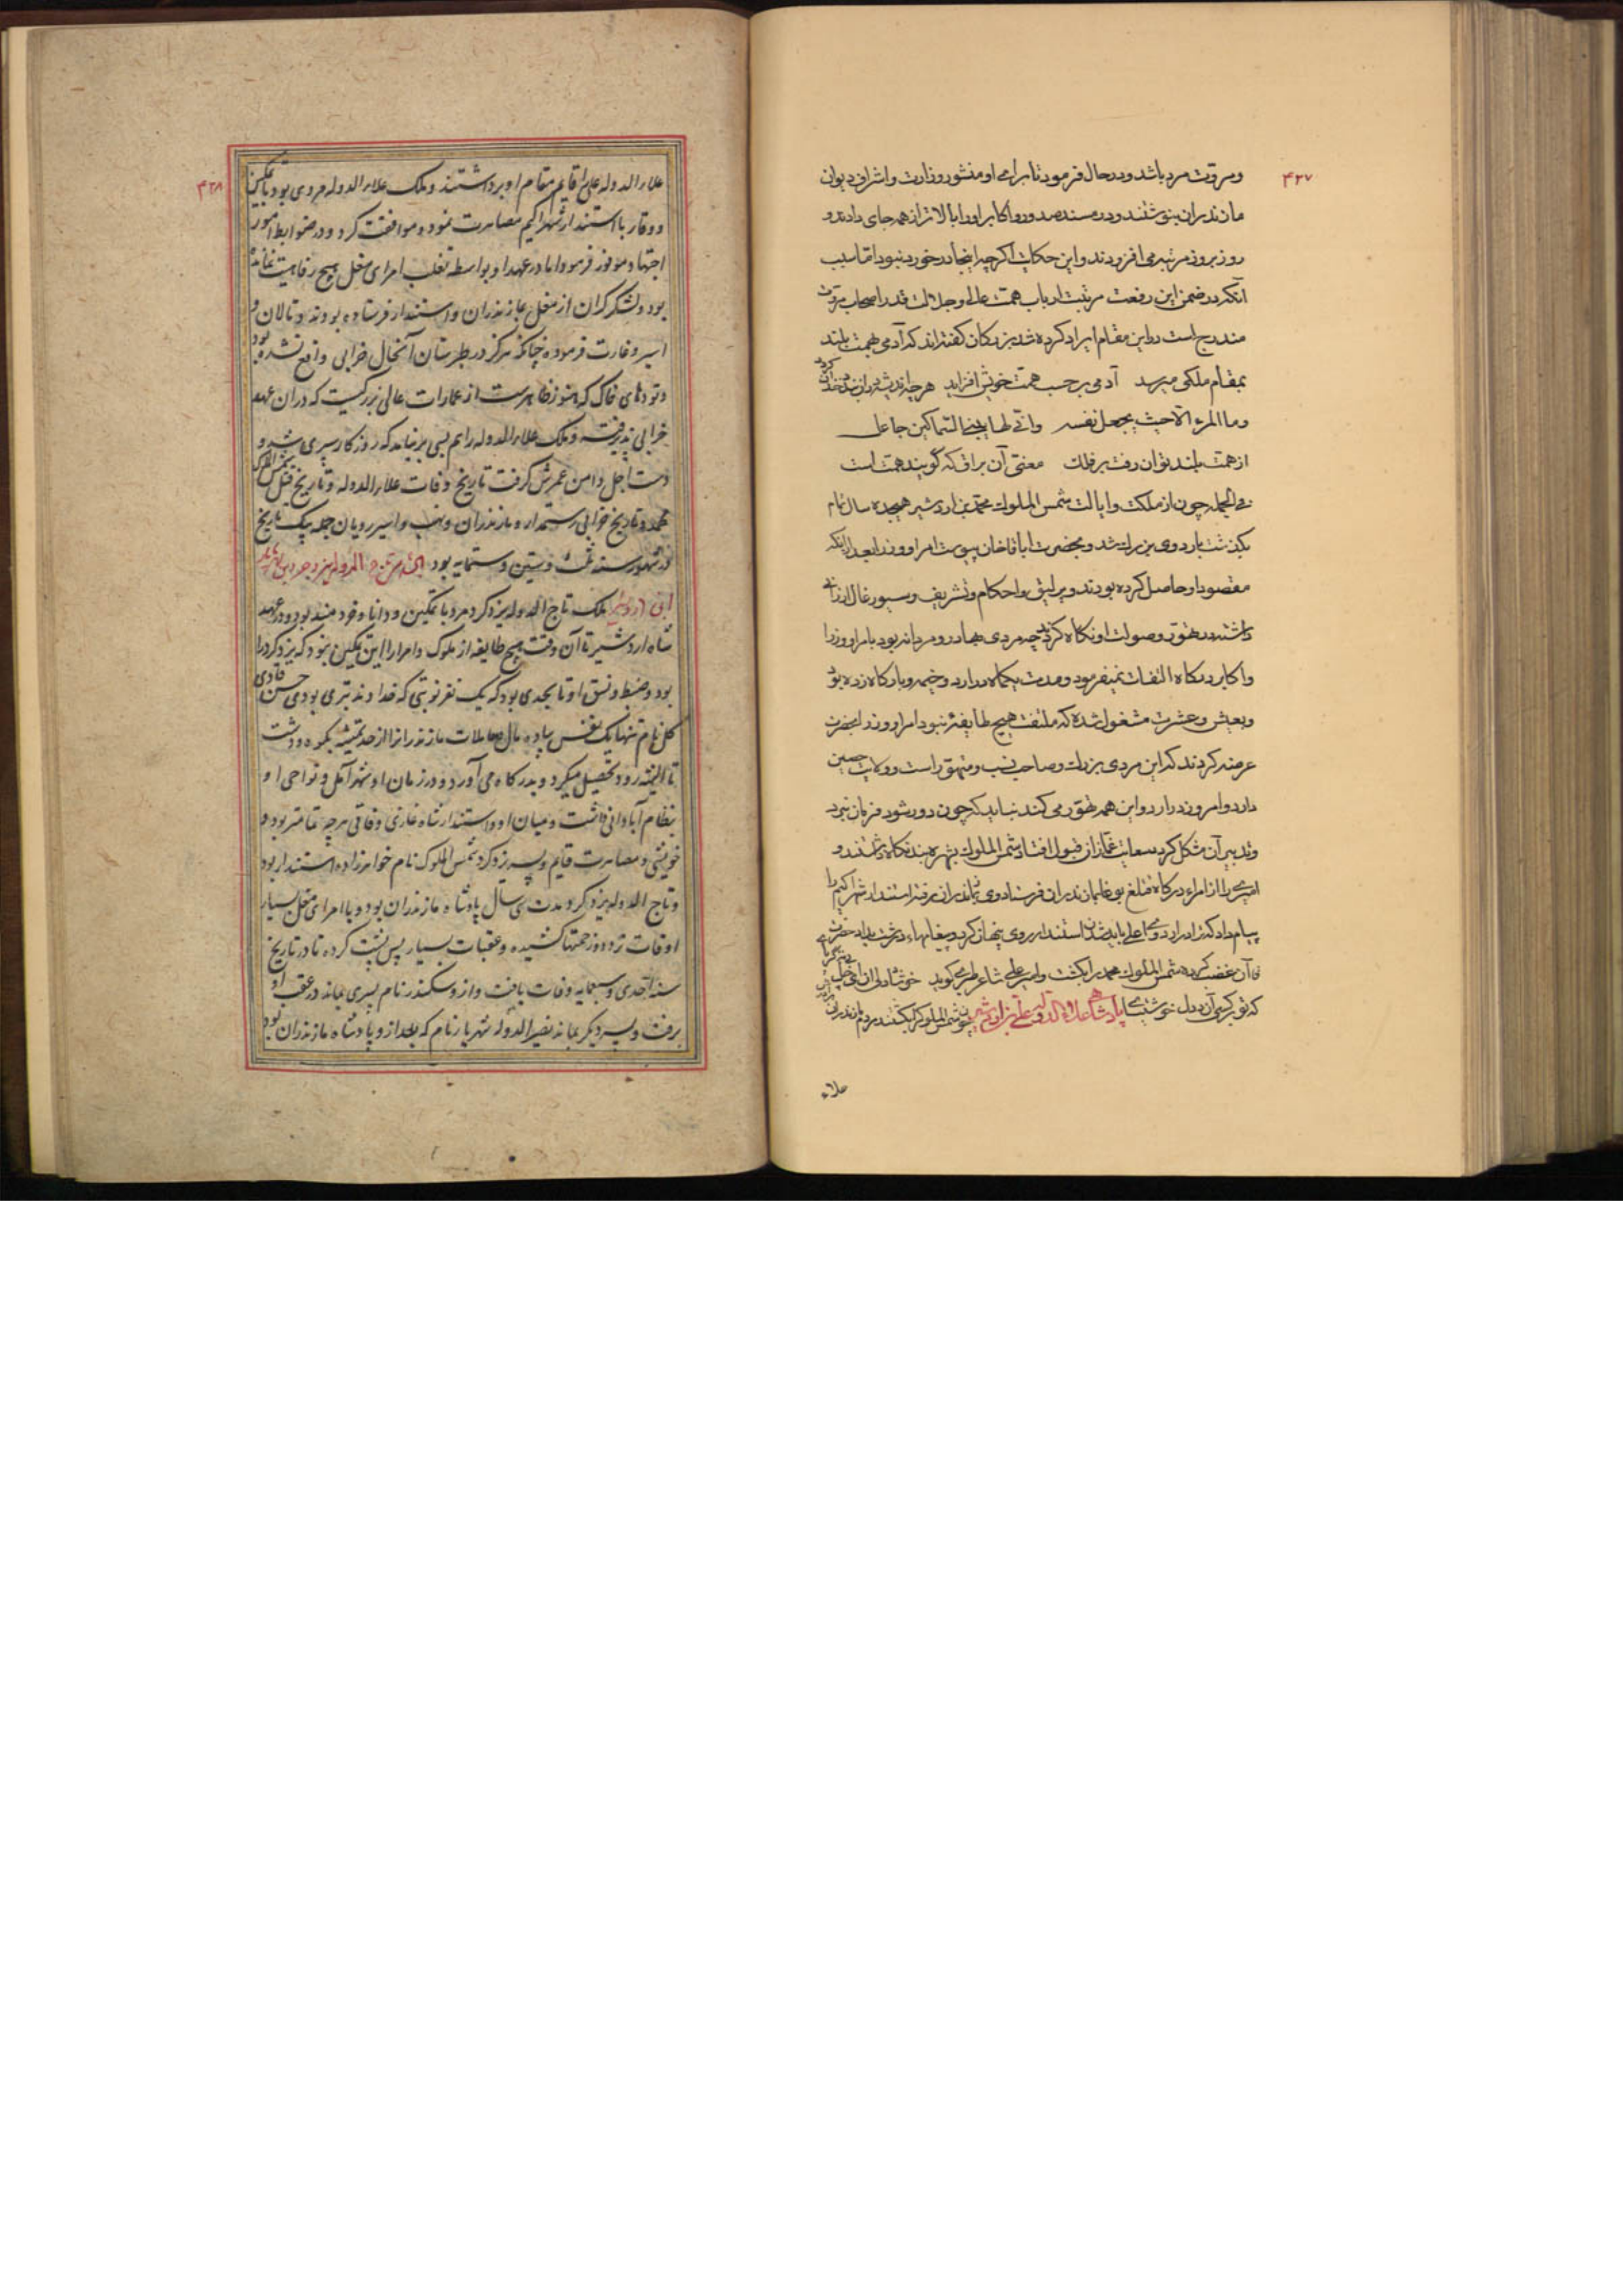 ۴۲۷
ومروت مرد باشد ودر حال فرمود تا برای او منشور وزارت واشراف دیوان
مازندران بنوشتند ودر مسند صدور واکابر او را بالاتر از همه جای دادند و
روز بروز مرتبه می افزودند واین حکایت اگرچه اینجا در خورد نبود اما سبب
آنکه در ضمن این رفعت مرتبت ارباب همت عالی وجلالت قدر اصحاب مروت
مندرج است در این مقام ایراد کرده شد بزرکان کفته اند که آدمی بهمت بلند
بمقام ملکی میرسد آدمی بر حسب همت خویش افزاید هرچه اندیشه در ان بندد چندان کردد
وما المرء الا حیث یجعل نفسه وانی لها فوق السماکین جاعل
از همت بلند توان رفت بر فلک معنی آن براق که کویند همت است
فی الجمله چون از ملکت وایالت شمس الملوک محمد بن اردشیر هیجده سال تمام
بکذشت باردوی بزرک شد وبحضرت اباقاخان پیوست امرا ووزرا بعد از آنکه
مقصود او حاصل کرده بودند وبرلیغ واحکام وتشریف وسیورغال ارزانی
داشته در تهور وصولت او نکاه کردند چه مردی بهادر ومردانه بود بامرا ووزرا
واکابر درکاه التفات نمیفرمود ومدت یکماه در اردو خیمه وبارکاه زده بود
وبعیش وعشرت مشغول شده که ملتفت هیچ طایفه نبود امرا ووزرا بحضرت
عرضه کردند که این مردی بزرک وصاحب نسب ومتهور است وولایت حصین
دارد وامروز در اردو این همه تهور می کند نباید که چون دور شود فرمان نبرد
وتدبیر آن مشکل کردد سعایت غماز ان قبول افتاد شمس الملوک بشهره بند نکاه داشتند و
امیری را از امراء درکاه قتلغ بوغا بمازندران فرستاد وی بمازندران رفته استندار شهراکیم را
پیام داد که ترا باردوی اعلی باید شدن استندار روی پنهان کرد وپیغامهاء درشت داد حضرت
از آن غضب کرده شمس الملوک محمد را بکشت وامیر علی شاعر طبری کوید خوشا دلی
که تو بر کرسی آن دل خوش نشینی پادشاهی علاء الدوله علی بن اردشیر چون شمس الملوک را بکشتند مردم مازندران
علاء
۴۲۸
علاء الدوله علی را قایم مقام او برداشتند وملک علاء الدوله مردی بود با تمکین
ووقار با استندار شهراکیم مصاهرت نمود وموافقت کرد ودر ضوابط امور
اجتهاد موفور فرمود اما در عهد او بواسطه تغلب امرای مغل هیچ رفاهیت نمانده
بود ولشکر کران از مغل بمازندران واستندار فرستاده بودند وتالان و
اسیر وغارت فرموده چنانکه هرکز در طبرستان آنحال خرابی واقع نشده بود
وتودهای خاک که هنوز ظاهرست از عمارات عالی بزرکیست که در ان عهد
خرابی پذیرفته وملک علاء الدوله را هم بسی بر نیامد که روزکار سپری شد و
دست اجل دامن عمرش کرفت تاریخ وفات علاء الدوله وتاریخ قتل شمس الملوک
محمد وتاریخ خرابی رستمدار ومازندران ونهب واسیر رویان جمله یک تاریخ
در شهور سنه ثلث وستین وستمایه بود پادشاهی تاج الدوله یزدجرد بن شهریار
ابن اردشیر ملک تاج الدوله یزدکرد مرد با تمکین ودانا وخردمند بود ودر عهد
شاه اردشیر تا آن وقت هیچ طایفه از ملوک وامرا را این تمکین نبود که یزدکرد را
بود وضبط ونسق او تا بحدی بود که یک نفر نوبتی که خداوند تبری بودی حسن قادی
کل نام تنها یک نفس پیاده مال معاملات مازندرانرا از حد تمیشه بکوه ودشت
تا الیشه رود تحصیل میکرد وبدرکاه می آورد ودر زمان او شهر آمل ونواحی او
بنظام آبادانی داشت ومیان او واستندار شاه غازی وفاقی هرچه تمامتر بود و
خویشی ومصاهرت قایم وپسر یزدکرد شمس الملوک نام خواهرزاده استندار بود
وتاج الدوله یزدکرد مدت سی سال پادشاه مازندران بود وبا امرای مغل بسیار
اوقات زده وزحمتها کشیده وعقبات بسیار پس پشت کرده تا در تاریخ
سنه احدی وسبعمایه وفات یافت واز وسکندر نام پسری بماند در عقب او
برفت وپسر دیکر بماند نصیر الدوله شهریار نام که بعد از و پادشاه مازندران بود